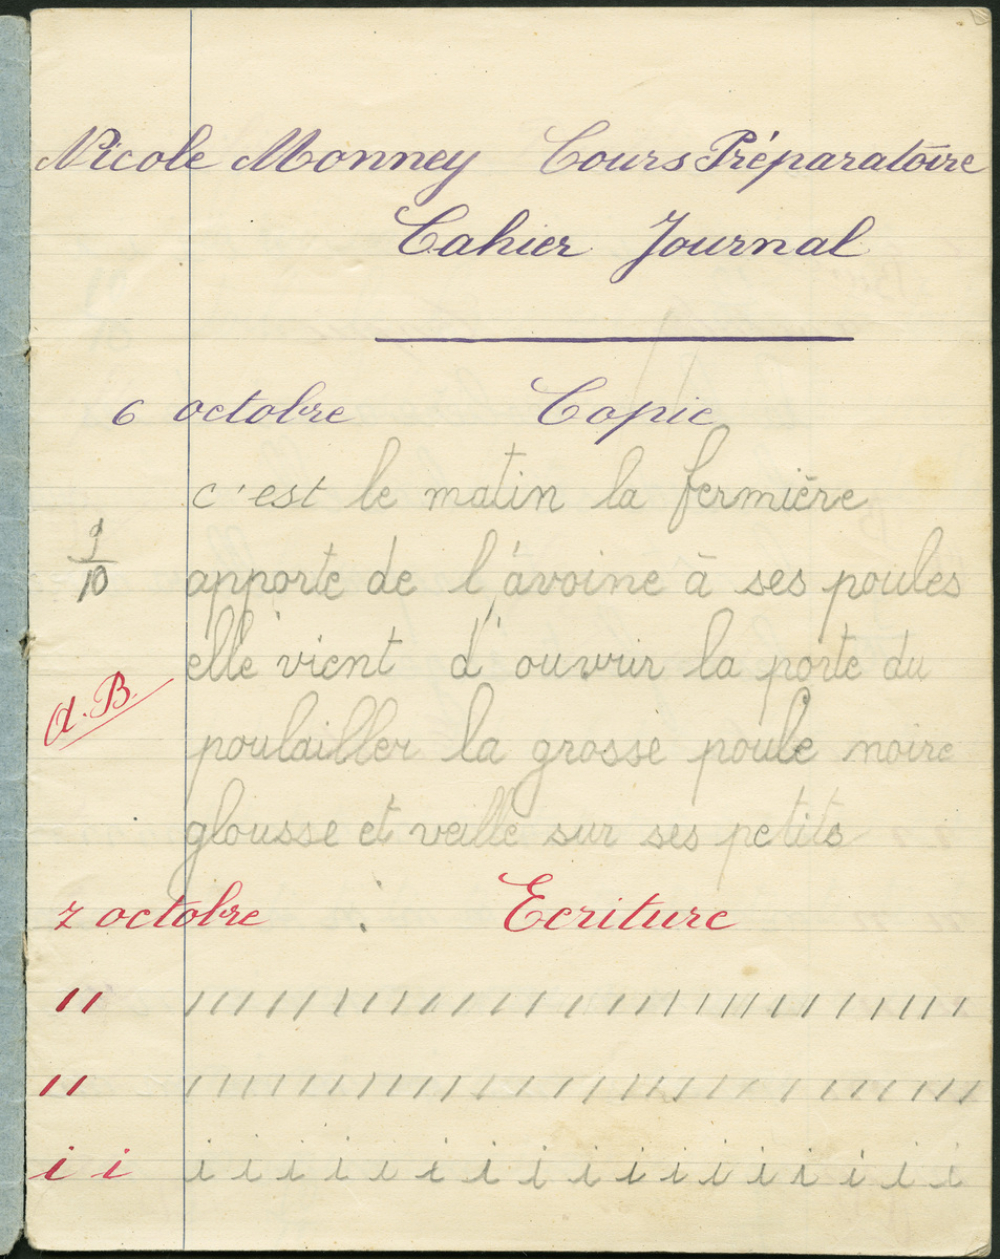 Nicole Monney Cours Préparatoire
Cahier Journal
6 octobre Copie
c'est le matin la fermière
9/10
apporte de l'avoine à ses poules
elle vient d'ouvrir la porte du
A.B.
poulailler la grosse poule noire
glousse et veille sur ses petits
7 octobre Ecriture
ı ı ı ı ı ı ı ı ı ı ı ı ı ı ı ı ı ı ı ı ı ı ı ı ı ı ı ı ı
ı ı ı ı ı ı ı ı ı ı ı ı ı ı ı ı ı ı ı ı ı ı ı ı ı ı ı ı ı
i i i i i i i i i i i i i i i i i i i i